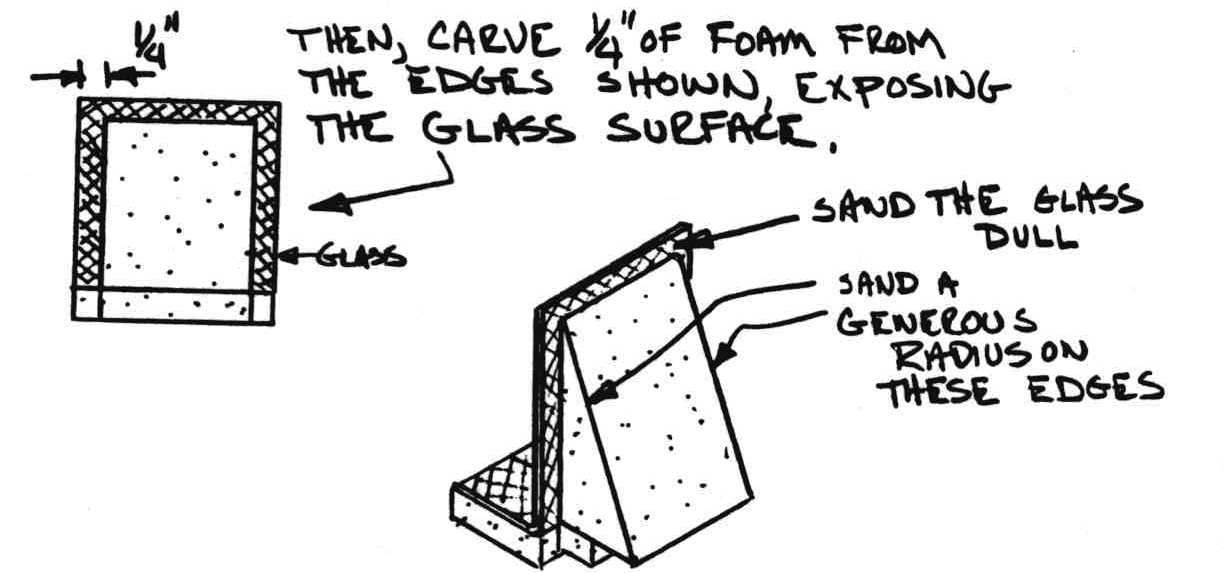 1/4"
THEN, CARVE 1/4" OF FOAM FROM
THE EDGES SHOWN, EXPOSING
THE GLASS SURFACE.
GLASS
SAND THE GLASS
DULL
SAND A
GENEROUS
RADIUS ON
THESE EDGES